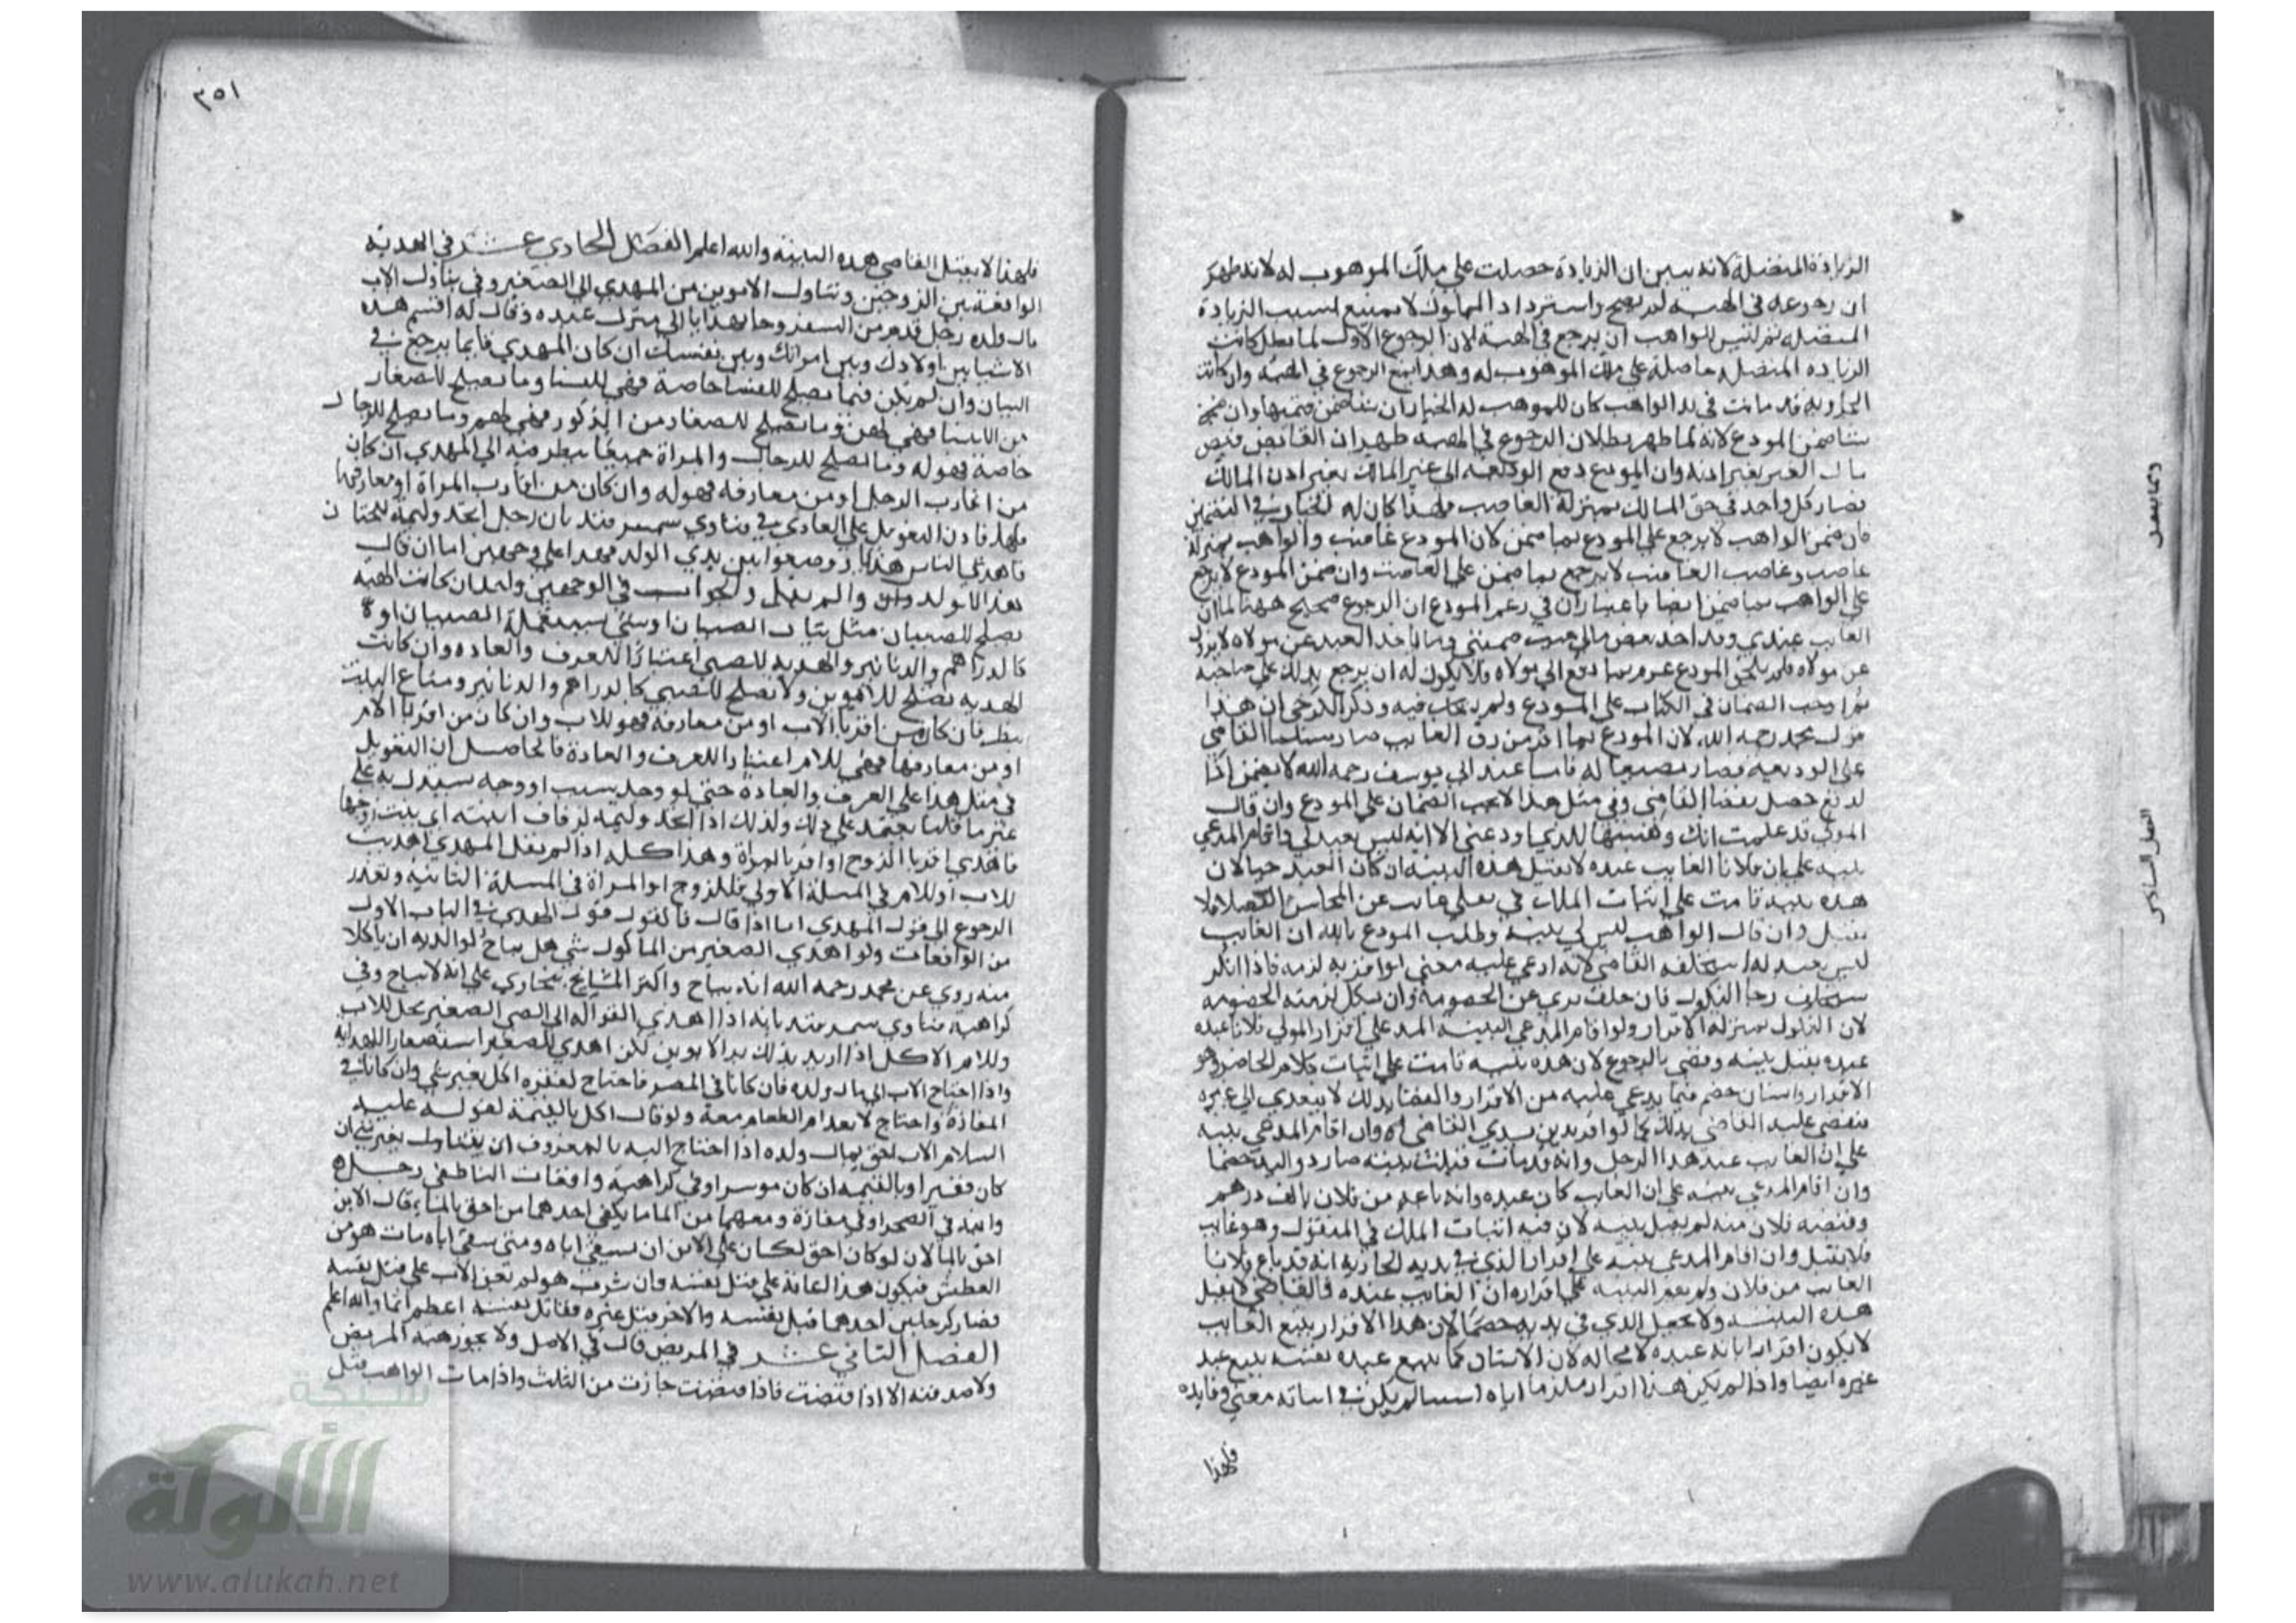 الزيادة المنفصلة لانه تبين ان الزيادة حصلت على ملك الموهوب له لانه ظهر
ان رجوعه في الهبة لم يصح واسترداد المملوك لا يمتنع لسبب الزيادة
المنفصلة ثم ليس للواهب ان يرجع في الهبة لان الرجوع الاول لما بطل كانت
الزيادة المنفصلة حاصلة على ملك الموهوب له وهذا يمنع الرجوع في الهبة وان كانت
الجارية قد ماتت في يد الواهب كان للموهب له الخيار ان شا ضمن قيمتها وان
شا ضمن المودع لانه لما ظهر بطلان الرجوع في الهبة ظهر ان القابض قبض
مال الغير بغير اذنه وان المودع دفع الوديعة الى غير المالك بغير اذن المالك
فصار كل واحد في حق المالك بمنزلة الغاصب ولهذا كان له الخيار في التضمين
فان ضمن الواهب لا يرجع على المودع بما ضمن لان المودع غاصب والواهب بمنزلة
غاصب الغاصب وغاصب الغاصب لا يرجع بما ضمن على الغاصب وان ضمن المودع لا يرجع
على الواهب بما ضمن ايضا باعتبار ان في زعم المودع ان الرجوع صحيح
الغايب عبدي وقد اخذ بعض مالي وما ياخذ العبد عن مولاه
عن مولاه فلم يلحق المودع غرم بما دفع الى مولاه فلا يكون له ان يرجع بذلك على صاحبه
ثم اوجب الضمان في الكتاب على المودع ولم يحك فيه وذكر الكرخي ان هذا
قول محمد رحمه الله لان المودع بما اقر من رق الغايب صار مسلطا القاضي
على الوديعة فصار مضيعا له فاما عند ابي يوسف رحمه الله لا يضمن اذا
الدفع حصل بقضا القاضي وفي مثل هذا لا يجب الضمان على المودع وان قال
المولى قد علمت انك وهبتها للذي اودعني الا انه ليس بعبد لي واقام المدعي
بينة على ان فلانا الغايب عبده لا تقبل هذه البينة ان كان العبد حيا لان
هذه بينة قامت على اثبات الملك على غايب عن المجلس فلا
تقبل وان قال الواهب ليس لي بينة وطلب المودع بالله ان الغايب
ليس بعبد له استحلفه القاضي لانه ادعى عليه معنى لو اقر به لزمه فاذا انكر
يستحلف رجا النكول فان حلف بري عن الخصومة وان نكل لزمته الخصومة
لان النكول بمنزلة الاقرار ولو اقام المدعي البينة على اقرار المولى فلانا عبده
عبده يقبل بينته وقضى بالرجوع لان هذه بينة قامت على اثبات كلام الحاضر وهو
الاقرار وانسان خصم فيما يدعي عليه من الاقرار والقضا بذلك لا يتعدى الى غيره
فيقضي عليه القاضي بذلك كما لو اقر بين يدي القاضي وان اقام المدعي بينة
على ان الغايب عبد هذا الرجل وانه قد مات قبلت بينته صار ذو اليد خصما
وان اقام المدعي بينة على ان الغايب كان عبده وانه باعه من فلان بالف درهم
وقبضه فلان منه لم يقبل بينته لان فيه اثبات الملك في المنقول وهو غايب
فلا تقبل وان اقام المدعي بينة على اقرار الذي في يديه الجارية انه قد باع فلانا
الغايب من فلان ولم يقم البينة على اقراره ان الغايب عبده فالقاضي لا يقبل
هذه البينة ولا يجعل الذي في يديه خصما لان هذا الاقرار ببيع الغايب
لا يكون اقرارا بانه عبده لا محالة لان الانسان كما يبيع عبده نفسه يبيع عبد
غيره ايضا واذا لم يكن هذا اقرار ملزما اياه لم يكن في اثباته معنى وفايدة
فلهذا
٣٥١
فلهذا لا يقبل القاضي هذه البينة والله اعلم الفصل الحادي عشر في الهدية
الواقعة بين الزوجين وتناول الابوين من المهدى الى الصغير وفي تناول الاب
مال ولده رجل قدم من السفر وجا بهدايا الى منزل عنده وقال له اقسم هذه
الاشيا بين اولادك وبين امراتك وبين نفسك ان كان المهدي قايما يرجع في
البيان وان لم يكن فما يصلح للنسا خاصة فهي للنسا وما يصلح للصغار
من الاناث فهي لهن وما يصلح للصغار من الذكور فهي لهم وما يصلح للرجال
خاصة فهو له وما يصلح للرجال والمراة جميعا ينظر منه الى المهدي ان كان
من اقارب الرجل او من معارفه فهو له وان كان من اقارب المراة او معارفها
فلها فاذن التعويل على العادة وفي فتاوي سمرقند بان رجل اتخذ وليمة للختان
فاهدى الناس هدايا ووضعوا بين يدي الولد فهذا على وجهين اما ان قال
هذا للولد وان لم يقل والجواب في الوجهين واحد ان كانت الهبة
تصلح للصبيان مثل ثياب الصبيان او شي يستعمله الصبيان
كالدراهم والدنانير والهدية للصبي اعتبارا للعرف والعادة وان كانت
الهدية تصلح للابوين ولا تصلح للصبي كالدراهم والدنانير ومتاع البيت
ينظر فان كان من اقربا الاب او من معارفه فهو للاب وان كان من اقربا الام
او من معارفها فهي للام اعتبارا للعرف والعادة فالحاصل ان التعويل
في مثل هذا على العرف والعادة حتى لو وجد سبب او وجه يستدل به على
غير ما قلنا يعتمد على ذلك وكذلك اذا اتخذ وليمة لزفاف ابنته الى بيت زوجها
فاهدى اقربا الزوج او اقربا المراة وهذا كله اذا لم يقل المهدي اهديت
للاب او للام في المسلة الاولى وللزوج او المراة في المسلة الثانية وتعذر
الرجوع الى قول المهدي اما اذا قال فالقول قول المهدي في الباب الاول
من الواقعات ولو اهدى الصغير من الماكول شي هل يباح لوالديه ان ياكلا
منه روي عن محمد رحمه الله انه يباح واكثر المشايخ ببخارى على انه لا يباح وفي
كراهية فتاوي سمرقند بانه اذا اهدى الفواكه الى الصبي الصغير يحل للاب
وللام الاكل اذا اريد بذلك برالابوين لكن اهدي للصغير استصغارا للهدية
واذا احتاج الاب الى مال ولده فان كانا في المصر فاحتاج لفقره اكل بغير شي وان كانا في
المفازة واحتاج لانعدام الطعام معه ولو قال اكل بالقيمة لقوله عليه
السلام الاب احق بمال ولده اذا احتاج اليه بالمعروف ان يتناول بغير شي ان
كان فقيرا وبالقيمة ان كان موسرا وفي كراهية واقعات الناطفي رجل
وابنه في الصحرا وفي مفازة ومعهما من الما ما يكفي احدهما من احق بالما قال الابن
احق بالما لان لو كان احق لكان على الابن ان يسقي اباه ومتى سقى اباه مات هو من
العطش فيكون هذا اعانة على قتل نفسه وان شرب هو لم يعن الاب على قتل نفسه
فصار كرجلين احدهما قتل نفسه والاخر قتل غيره فقاتل نفسه اعظم اثما والله اعلم
الفصل الثاني عشر في المريض قال في الاصل ولا يجوز هبة المريض
ولا صدقته الا اذا قبضت فاذا قبضت جازت من الثلث واذا مات الواهب قبل
شبكة
الألوكة
www.alukah.net